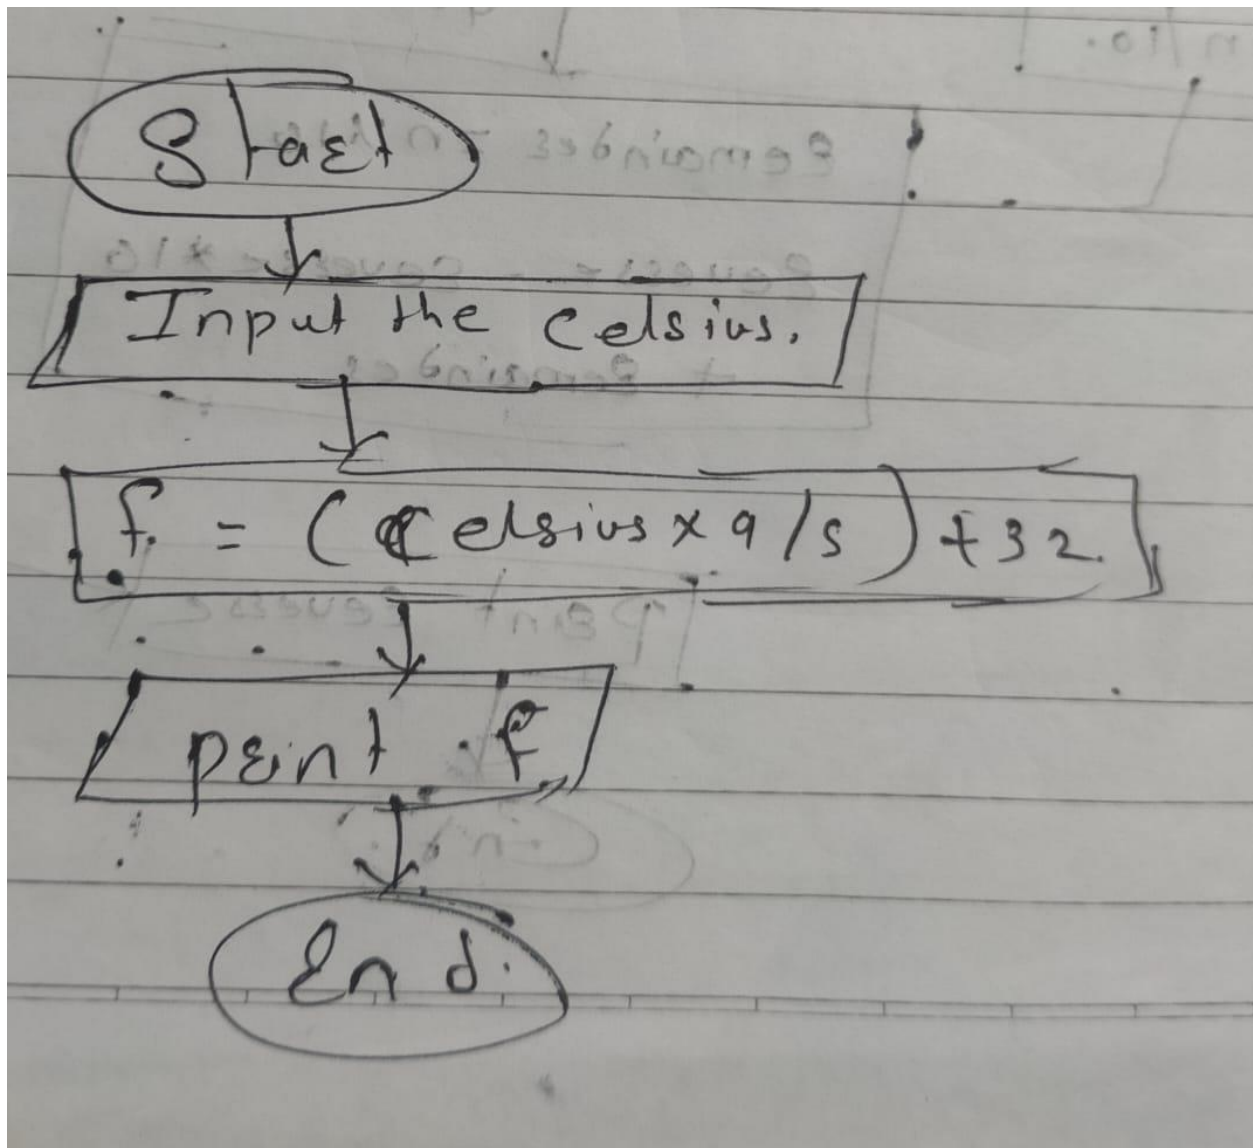 Start
Input the Celsius.
f = (Celsius x 9/5) + 32.
print f
End.